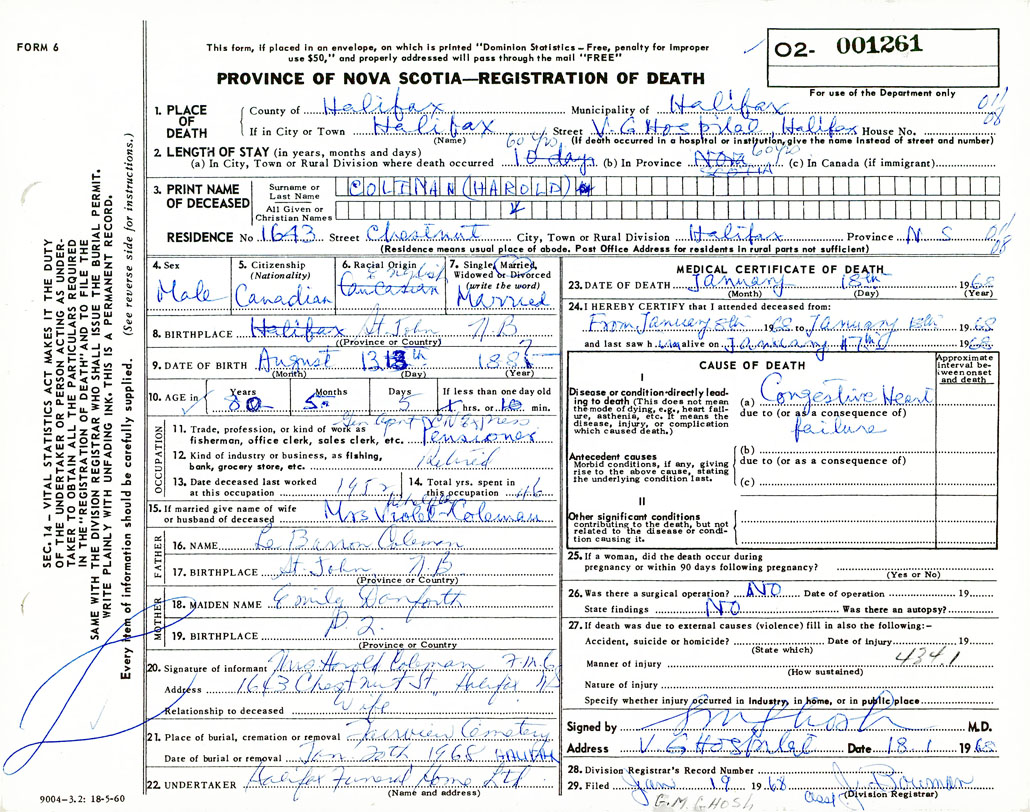 FORM 6
This form, if placed in an envelope, on which is printed "Dominion Statistics – Free, penalty for improper
use $50," and properly addressed will pass through the mail "FREE"
PROVINCE OF NOVA SCOTIA—REGISTRATION OF DEATH
O2- 001261
For use of the Department only
SEC. 14 – VITAL STATISTICS ACT MAKES IT THE DUTY
OF THE UNDERTAKER OR PERSON ACTING AS UNDER-
TAKER TO OBTAIN ALL THE PARTICULARS REQUIRED
IN THE "REGISTRATION OF DEATH" AND TO FILE THE
SAME WITH THE DIVISION REGISTRAR WHO SHALL ISSUE THE BURIAL PERMIT.
WRITE PLAINLY WITH UNFADING INK. THIS IS A PERMANENT RECORD.
Every item of information should be carefully supplied. (See reverse side for instructions.)
1. PLACE OF DEATH
County of Halifax Municipality of Halifax
If in City or Town Halifax Street V. G Hospital Halifax House No.
(Name) (If death occurred in a hospital or institution, give the name instead of street and number)
2. LENGTH OF STAY (in years, months and days)
(a) In City, Town or Rural Division where death occurred 10 days (b) In Province Nova Scotia (c) In Canada (if immigrant)
3. PRINT NAME OF DECEASED
Surname or Last Name COLTMAN (HAROLD)
All Given or Christian Names
RESIDENCE No 1643 Street Chestnut City, Town or Rural Division Halifax Province N. S
(Residence means usual place of abode. Post Office Address for residents in rural parts not sufficient)
4. Sex Male
5. Citizenship (Nationality) Canadian
6. Racial Origin Caucasian
7. Single, Married, Widowed or Divorced (write the word) Married
8. BIRTHPLACE Halifax St. John N B
(Province or Country)
9. DATE OF BIRTH August 13th 188
(Month) (Day) (Year)
10. AGE in Years 80 Months 5 Days 5 If less than one day old hrs. or 10 min.
OCCUPATION
11. Trade, profession, or kind of work as
fisherman, office clerk, sales clerk, etc. Pensioner
12. Kind of industry or business, as fishing,
bank, grocery store, etc. Retired
13. Date deceased last worked
at this occupation 1952
14. Total yrs. spent in
this occupation 46
15. If married give name of wife
or husband of deceased Mrs Violet Coleman
FATHER
16. NAME Le Barron Coleman
17. BIRTHPLACE St. John N. B
(Province or Country)
MOTHER
18. MAIDEN NAME Emily Danforth
19. BIRTHPLACE
(Province or Country)
20. Signature of informant Mrs Harold Coleman
Address 1643 Chestnut St Halifax NS
Relationship to deceased Wife
21. Place of burial, cremation or removal Fairview Cemetery
Date of burial or removal Jan 20th 1968
22. UNDERTAKER Halifax Funeral Home Ltd.
(Name and address)
9004-3.2: 18-5-60
MEDICAL CERTIFICATE OF DEATH
23. DATE OF DEATH January 18th 1968
(Month) (Day) (Year)
24. I HEREBY CERTIFY that I attended deceased from:
From January 8th 1968 to January 18th 1968
and last saw h alive on January 17th 1968
CAUSE OF DEATH
Approximate interval between onset and death
I
Disease or condition directly lead-
ing to death (This does not mean
the mode of dying, e.g., heart fail-
ure, asthenia, etc. It means the
disease, injury, or complication
which caused death.)
(a) Congestive Heart
due to (or as a consequence of)
failure
Antecedent causes
Morbid conditions, if any, giving
rise to the above cause, stating
the underlying condition last.
(b)
due to (or as a consequence of)
(c)
II
Other significant conditions
contributing to the death, but not
related to the disease or condi-
tion causing it.
25. If a woman, did the death occur during
pregnancy or within 90 days following pregnancy?
(Yes or No)
26. Was there a surgical operation? NO Date of operation 19
State findings NO Was there an autopsy?
27. If death was due to external causes (violence) fill in also the following:–
Accident, suicide or homicide? Date of injury 19
(State which)
Manner of injury 434.1
(How sustained)
Nature of injury
Specify whether injury occurred in industry, in home, or in public place
Signed by M.D.
Address V. G Hospital Date 18. 1 1968
28. Division Registrar's Record Number
29. Filed Jan 19 1968 J. Bowman
(Division Registrar)
G. M. GHOSH